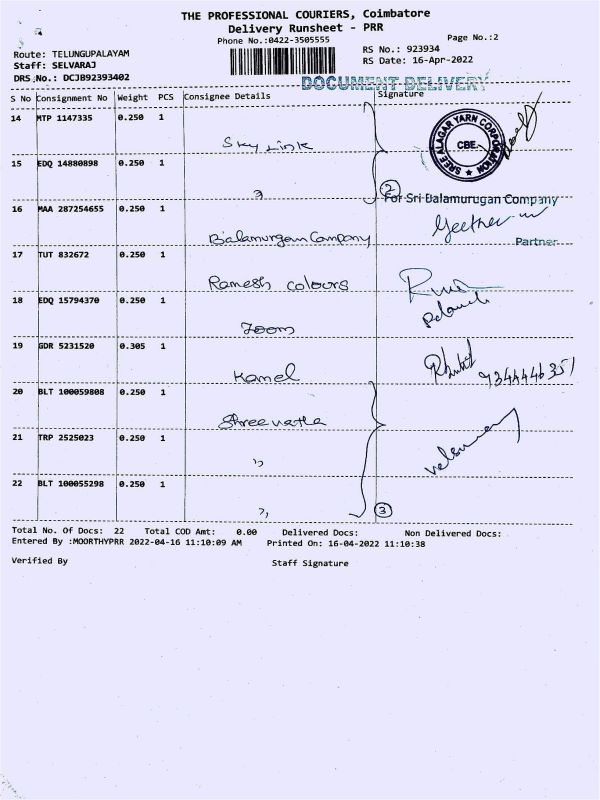 THE PROFESSIONAL COURIERS, Coimbatore
Delivery Runsheet - PRR
Phone No.:0422-3505555
Page No.:2
Route: TELUNGUPALAYAM
RS No.: 923934
Staff: SELVARAJ
RS Date: 16-Apr-2022
DRS No.: DCJB92393402
DOCUMENT DELIVERY
S No Consignment No Weight PCS Consignee Details Signature
14 MTP 1147335 0.250 1
SREE ALAGAR YARN CORPORATION
CBE.
Sky Link
15 EDQ 14880898 0.250 1
"
2
For Sri Balamurugan Company
16 MAA 287254655 0.250 1
Balamurgan Company
Partner
17 TUT 832672 0.250 1
Ramesh colours
18 EDQ 15794370 0.250 1
Zoom
19 GDR 5231520 0.305 1
Kamel
9344446351
20 BLT 100059808 0.250 1
21 TRP 2525023 0.250 1
"
22 BLT 100055298 0.250 1
"
3
Total No. Of Docs: 22 Total COD Amt: 0.00 Delivered Docs: Non Delivered Docs:
Entered By :MOORTHYPRR 2022-04-16 11:10:09 AM Printed On: 16-04-2022 11:10:38
Verified By Staff Signature